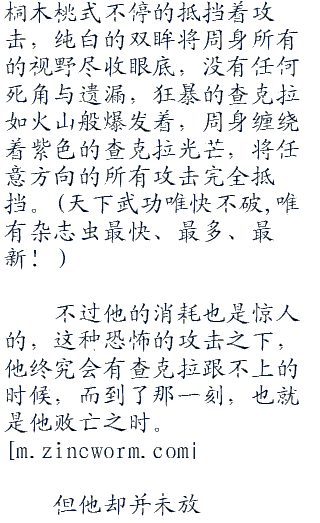 桐木桃式不停的抵挡着攻
击，纯白的双眸将周身所有
的视野尽收眼底，没有任何
死角与遗漏，狂暴的查克拉
如火山般爆发着，周身缠绕
着紫色的查克拉光芒，将任
意方向的所有攻击完全抵
挡。(天下武功唯快不破,唯
有杂志虫最快、最多、最
新！)
不过他的消耗也是惊人
的，这种恐怖的攻击之下，
他终究会有查克拉跟不上的
时候，而到了那一刻，也就
是他败亡之时。
[m.zincworm.com|
但他却并未放